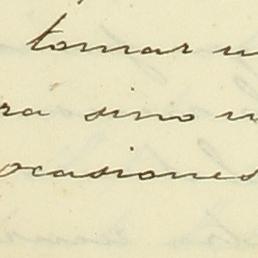 tomar u
ra sino u
ocasiones